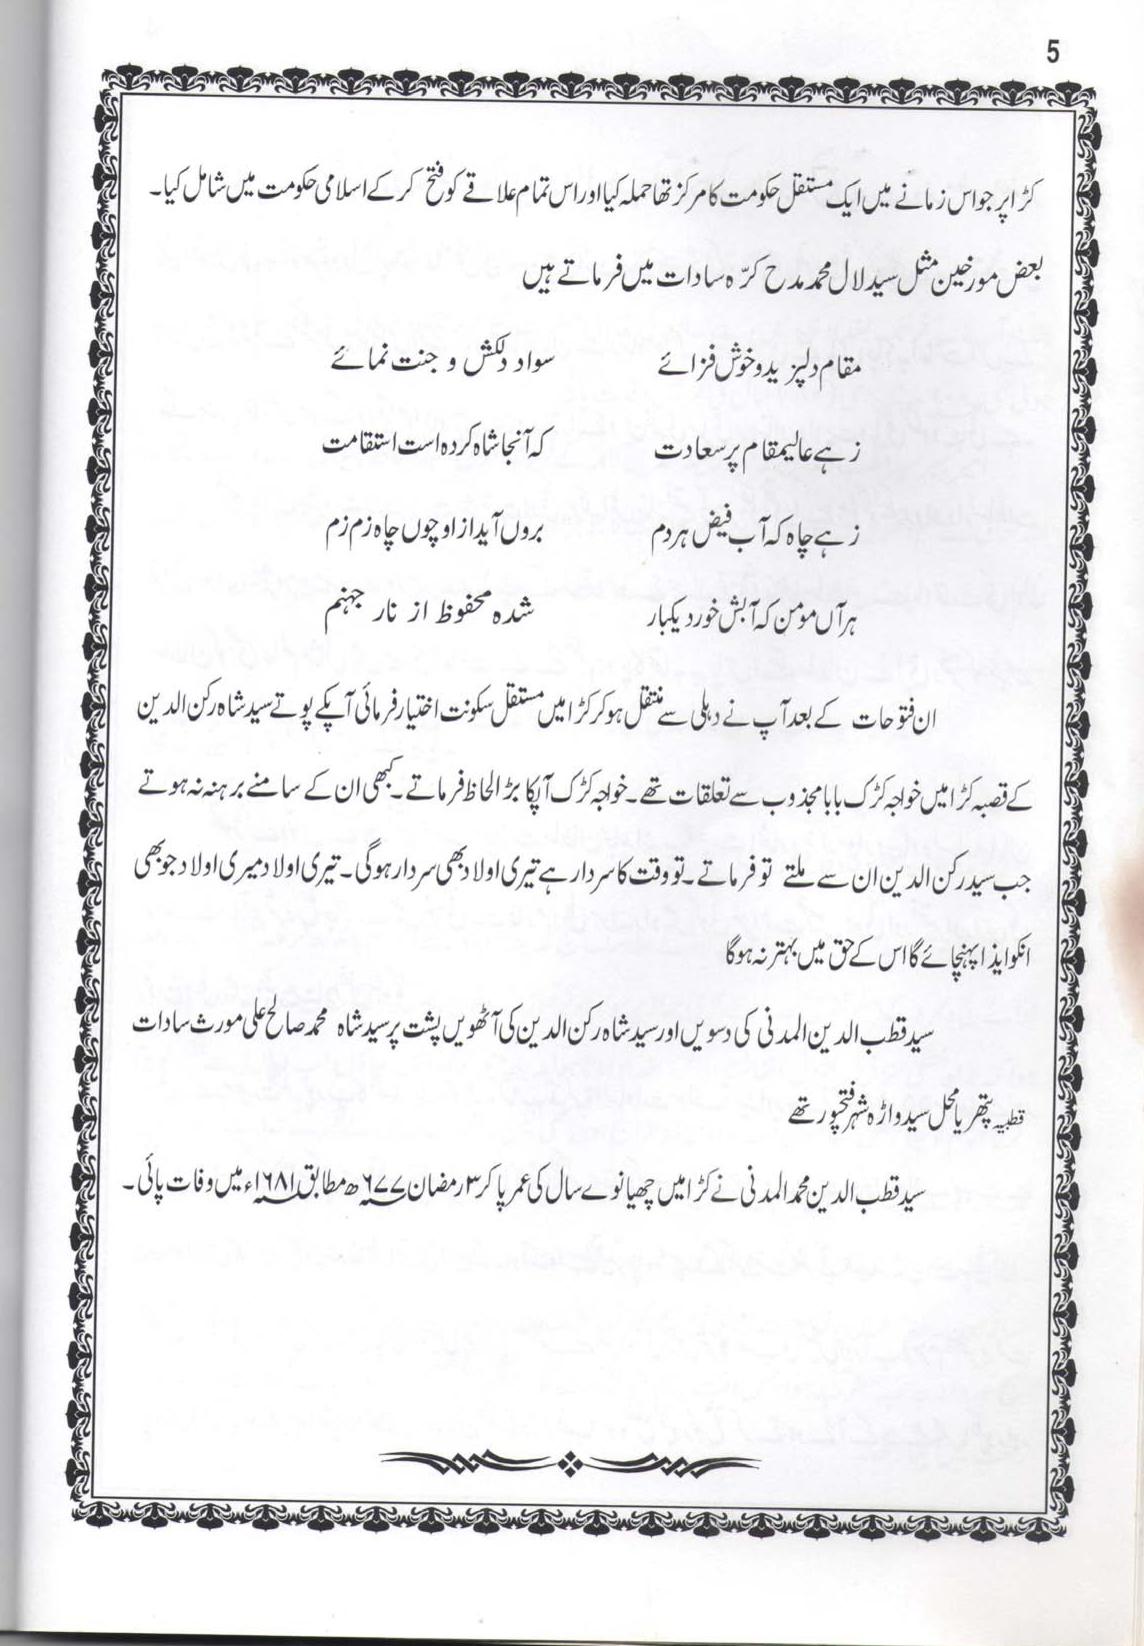 5
کڑا پر جو اس زمانے میں ایک مستقل حکومت کا مرکز تھا حملہ کیا اور اس تمام علاقے کو فتح کر کے اسلامی حکومت میں شامل کیا۔
بعض مورخین مثل سید لال محمد مدح کرّہ سادات میں فرماتے ہیں
مقام دلپزیر و خوش فزائے سواد دلکش و جنت نمائے
زہے عالیمقام پر سعادت کہ آنجا شاہ کردہ است استقامت
زہے چاہ کہ آب فیض ہردم بروں آید از او چوں چاہ زم زم
ہر آں مومن کہ آبش خورد یکبار شدہ محفوظ از نار جہنم
ان فتوحات کے بعد آپ نے دہلی سے منتقل ہو کر کڑا میں مستقل سکونت اختیار فرمائی آپکے پوتے سید شاہ رکن الدین
کے قصبہ کڑا میں خواجہ کڑک بابا مجذوب سے تعلقات تھے۔ خواجہ کڑک آپکا بڑا لحاظ فرماتے۔ کبھی ان کے سامنے برہنہ نہ ہوتے
جب سید رکن الدین ان سے ملتے تو فرماتے۔ تو وقت کا سردار ہے تیری اولاد بھی سردار ہوگی۔ تیری اولاد میری اولاد جو بھی
انکو ایذا پہنچائے گا اس کے حق میں بہتر نہ ہوگا
سید قطب الدین المدنی کی دسویں اور سید شاہ رکن الدین کی آٹھویں پشت پر سید شاہ محمد صالح علی مورث سادات
قطبیہ پتھر یا محل سید واڑہ شہر فتحپور تھے
سید قطب الدین محمد المدنی نے کڑا میں چھیانوے سال کی عمر پا کر ۳ رمضان ۶۷۷ھ مطابق ۱۶۸۱ء میں وفات پائی۔